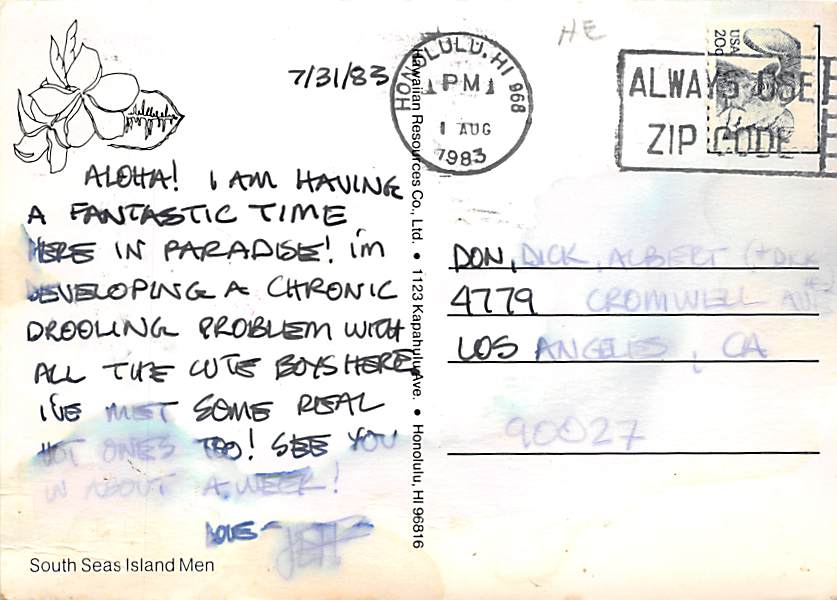 HE
7/31/83
HONOLULU, HI 968
PM
1 AUG
1983
USA
20c
ALWAYS USE
ZIP CODE
ALOHA! I AM HAVING
A FANTASTIC TIME
HERE IN PARADISE! I'm
DEVELOPING A CHRONIC
DROOLING PROBLEM WITH
ALL THE CUTE BOYS HERE
I'VE MET SOME REAL
HOT ONES TOO! SEE YOU
IN ABOUT A WEEK!
LOVE-
JEFF
South Seas Island Men
Hawaiian Resources Co., Ltd. • 1123 Kapahulu Ave. • Honolulu, HI 96816
DON, DICK, ALBERT (+ DICK
#2
4779 CROMWELL AVE
LOS ANGELES, CA
90027